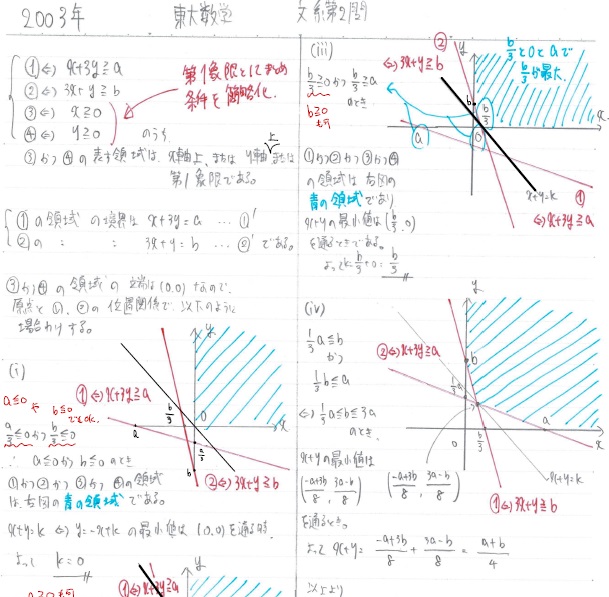 2003年 東大数学 文系第2問
① ⇔ x+3y≧a
② ⇔ 3x+y≧b
③ ⇔ x≧0
④ ⇔ y≧0 のうち
第1象限とはじめ
条件を簡略化.
③かつ④の表す領域は、x軸上、または y軸上または
第1象限である。
①の領域の境界は x+3y=a … ①'
②の 〃 〃 3x+y=b … ②' である。
③かつ④の領域の端は(0,0)なので、
原点と①、②の位置関係で、以下のように
場合わけする。
(i)
a≦0 や b≦0 でもok.
a/3≦0かつ b/3≦0
∴ a≦0かつb≦0 のとき
①かつ②かつ③かつ④の領域
は、右図の青の領域である。
x+y=k ⇔ y=-x+k の最小値は (0,0)を通る時.
よって k=0
y
x
O
① ⇔ x+3y≧a
b/3
a
a/3
b
② ⇔ 3x+y≧b
a≧0 も
① ⇔ x+3y≧a
y
(iii)
b/3≧0かつ b/3≧a
のとき
b≧0
も可
② ⇔ 3x+y≧b
y
b/3と0とaで
b/3が最大.
b
b/3
a
0
x
x+y=k
① ⇔ x+3y≧a
①かつ②かつ③かつ④
の領域は右図の
青の領域であり
x+y の最小値は (b/3, 0)
を通るときである。
よって k=b/3+0=b/3
(iv)
1/3a≦b
かつ
1/3b≦a
⇔ 1/3a≦b≦3a
のとき.
x+yの最小値は
((-a+3b)/8, (3a-b)/8)
を通るとき。
よって x+y= (-a+3b)/8 + (3a-b)/8 = (a+b)/4
以上より
y
② ⇔ x+3y≧a
b
1/3a
a
x
0
b/3
x+y=k
((-a+3b)/8, (3a-b)/8)
① ⇔ 3x+y≧b